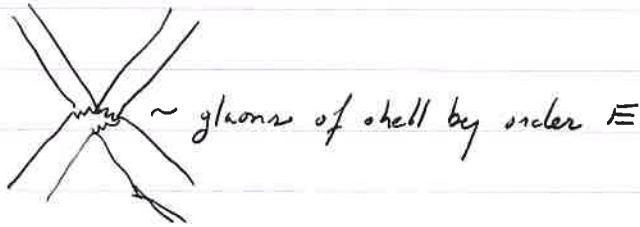 ~ gluons of shell by order E